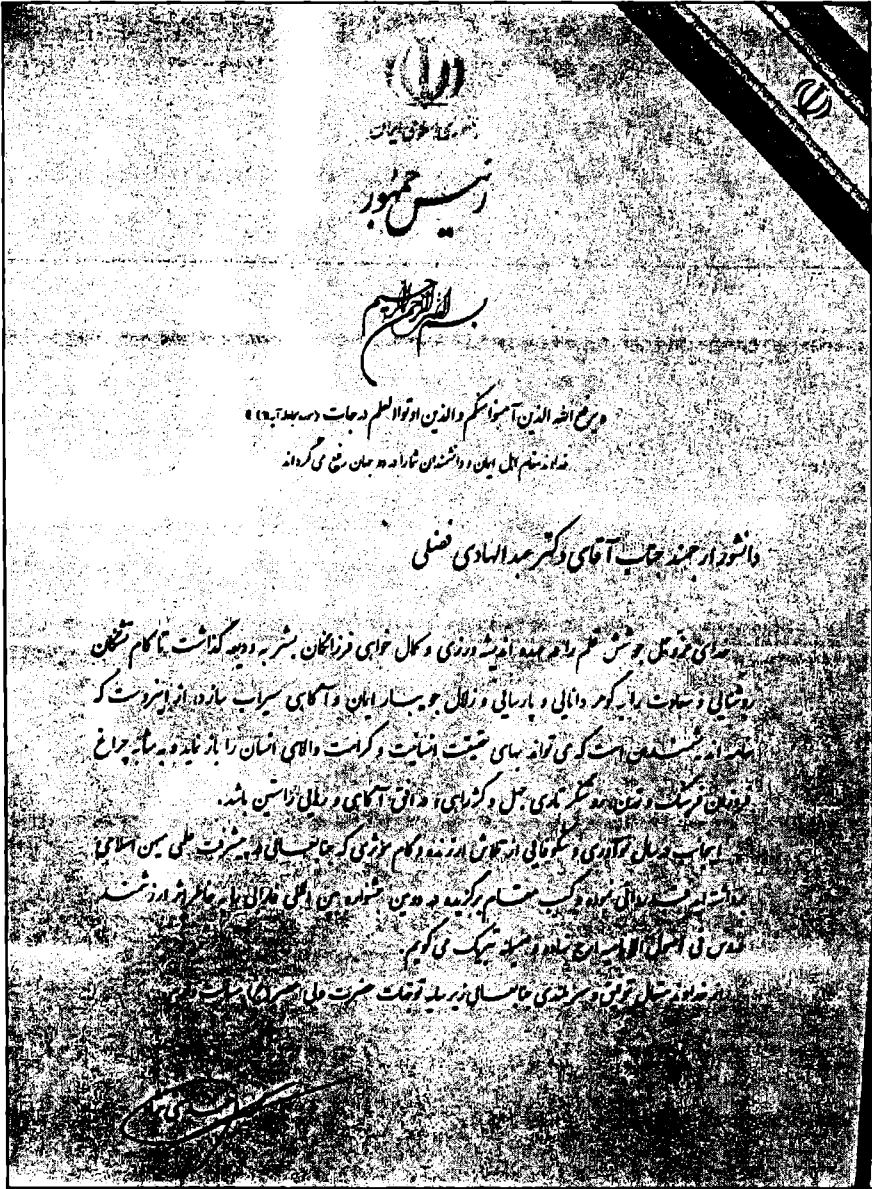 جمهوری اسلامی ایران
رئیس جمهور
بسم الله الرحمن الرحیم
«یرفع الله الذین آمنوا منکم و الذین اوتوا العلم درجات
خداوند مقام اهل ایمان و دانشمندان شما را در دو جهان رفیع می گرداند
دانشور ارجمند جناب آقای دکتر عبدالهادی فضلی
خدای عزوجل جوشش قلم را بر عهده اندیشه ورزی و کمال خواهی فرزانگان بشر به ودیعه گذاشت تا کام تشنگان
روشنایی و سعادت را به گوهر دانایی و پارسایی و زلال جویبار ایمان و آگاهی سیراب سازد، از اینروست که
اندیشمندان است که می تواند سیمای حقیقت انسانیت و کرامت والای انسان را باز نماید و به مثابه چراغ
فروزان فرهنگ و تمدن، روشنگر تاری جهل و کژراهی، در افق آگاهی و رهایی راستین باشد.
اینجانب در سال نوآوری و شکوفایی از تلاش ارزنده و گام مؤثری که جنابعالی در پیشرفت علمی میهن اسلامی
برداشته اید قدردانی نموده و کسب مقام برگزیده در دومین جشنواره بین المللی فارابی را به خاطر اثر ارزشمند
دروس فی اصول تبریک می گویم
از خداوند متعال توفیق و سربلندی جنابعالی زیر سایه توجهات حضرت ولی عصر (عج)